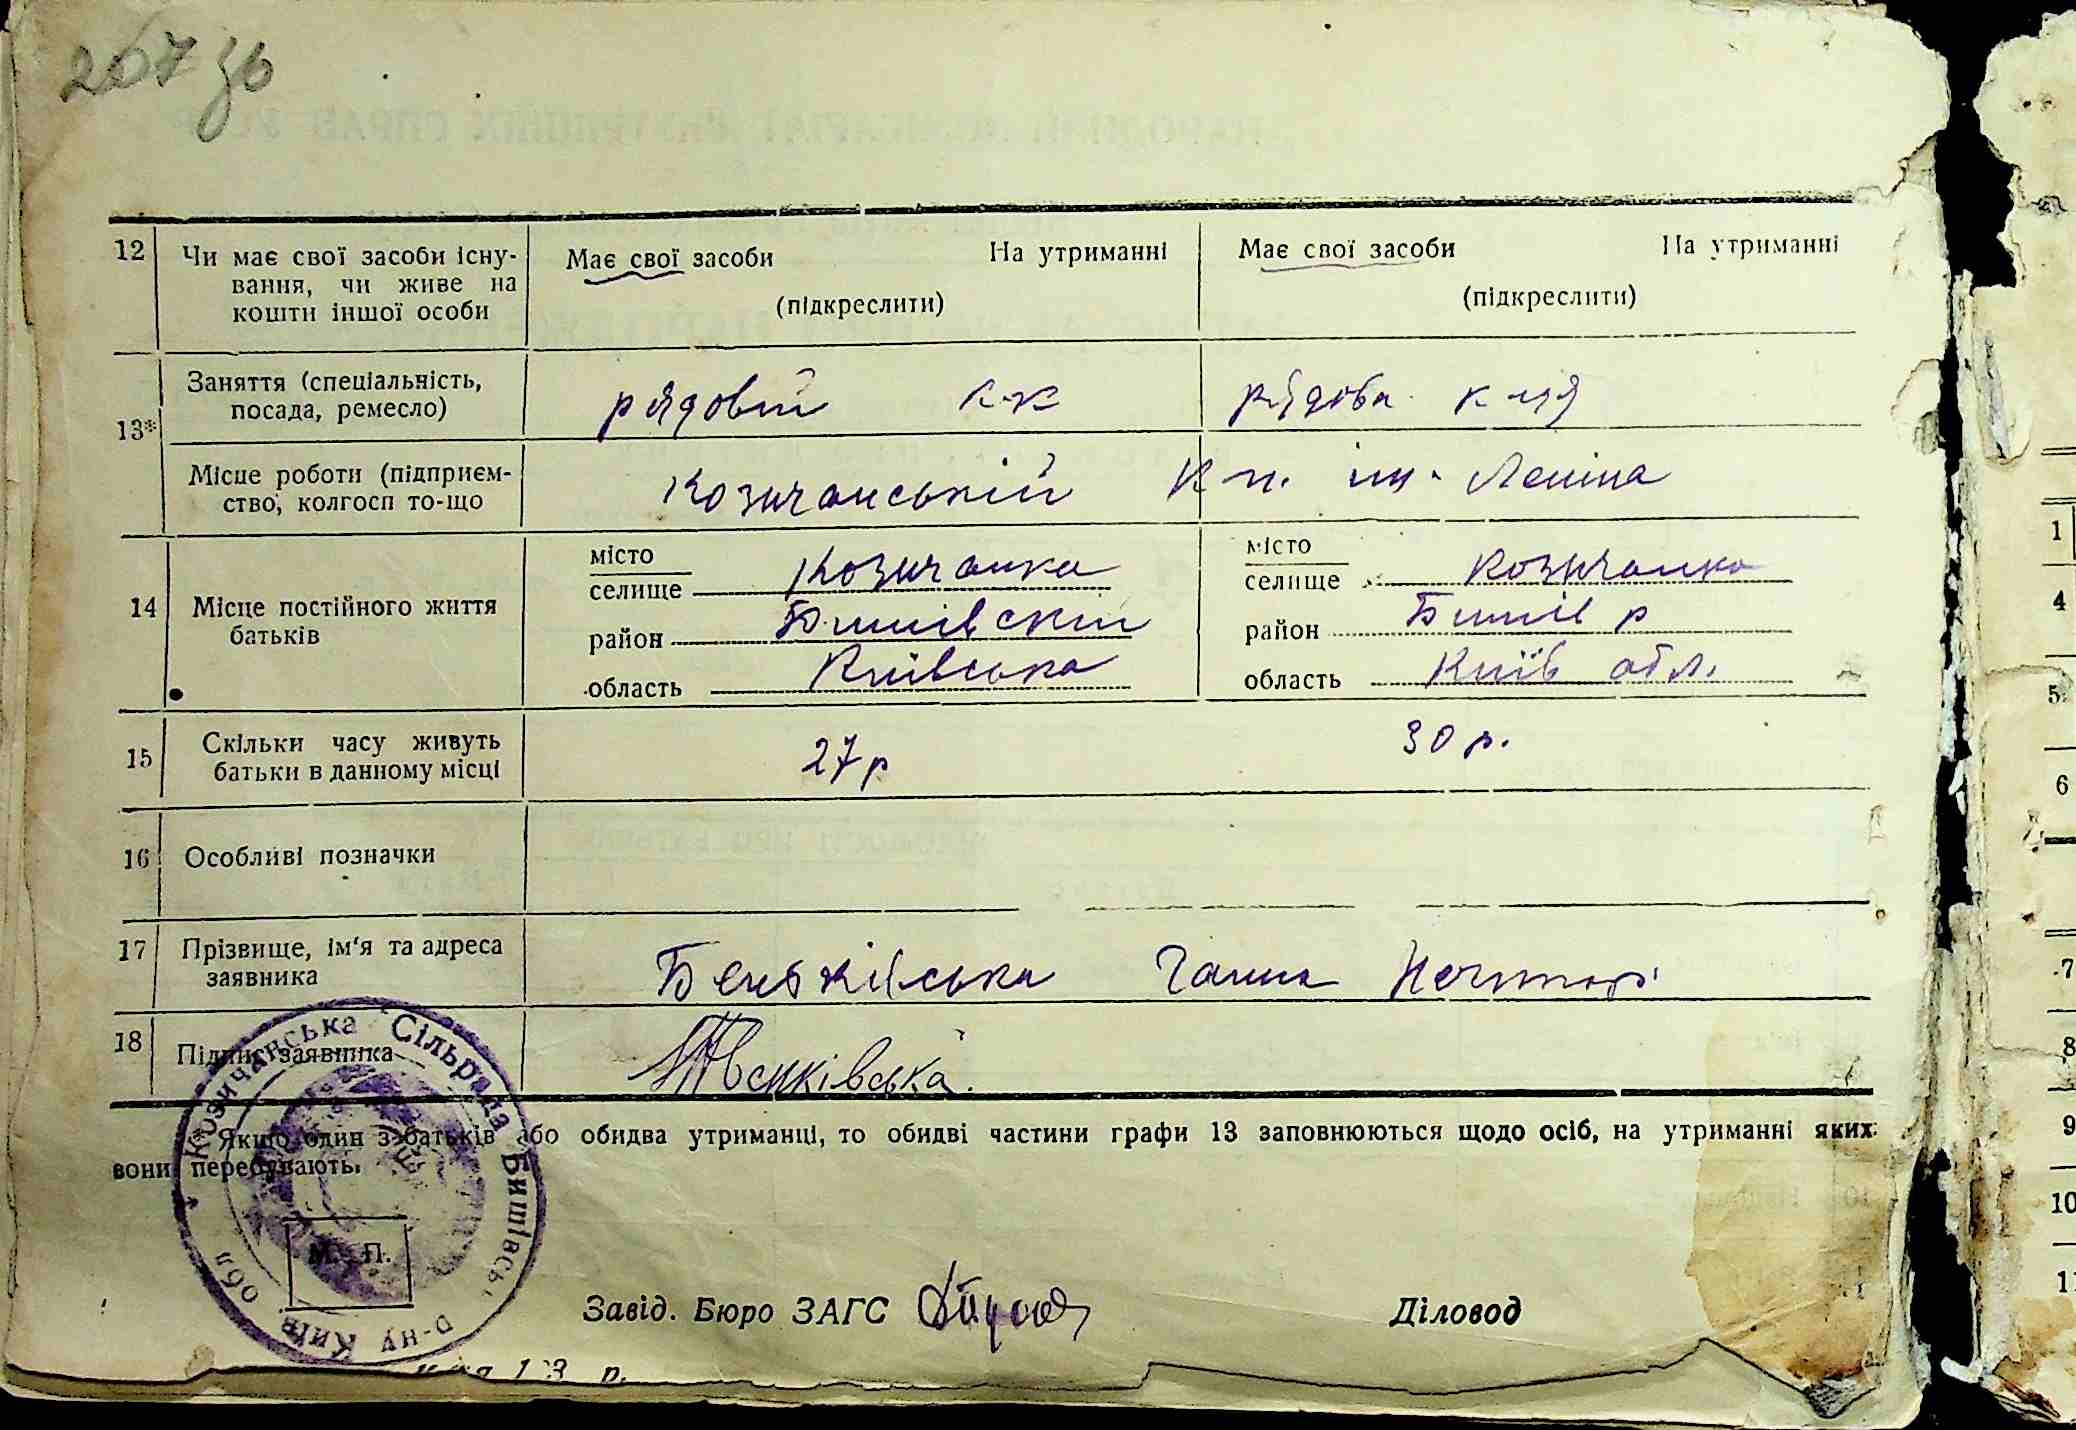 267 зв
12 Чи має свої засоби існу-
вання, чи живе на
кошти іншої особи
Має свої засоби На утриманні
(підкреслити)
Має свої засоби На утриманні
(підкреслити)
13*
Заняття (спеціальність,
посада, ремесло)
рядовий к-к
рядова к-ця
Місце роботи (підприєм-
ство, колгосп то-що
Козичанський к-п. им. Леніна
14 Місце постійного життя
батьків
місто
селище Козичанка
район Бишівский
область Київська
місто
селище Козичанка
район Бишів р
область Київ обл.
15 Скільки часу живуть
батьки в данному місці
27 р
30 р.
16 Особливі позначки
17 Прізвище, ім'я та адреса
заявника
Ганна
18 Підпис заявника
*Якщо один з батьків або обидва утриманці, то обидві частини графи 13 заповнюються щодо осіб, на утриманні яких
вони перебувають.
Козичанська Сільрада Бишівськ. р-ну Київ обл
М. П.
Завід. Бюро ЗАГС
Діловод
1
4
5
6
7
8
9
10
11